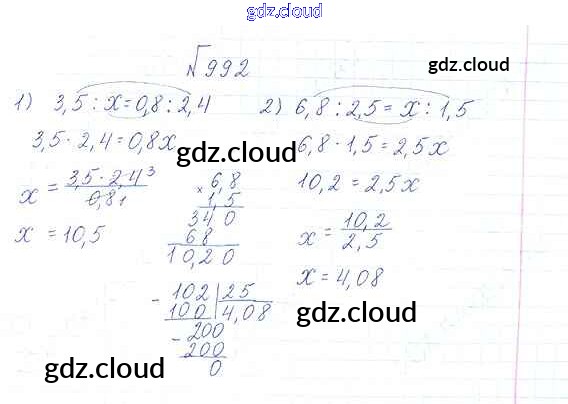 gdz.cloud
√992
gdz.cloud
1) 3,5 : x = 0,8 : 2,4
3,5 · 2,4 = 0,8x
x = 3,5 · 2,4 3 / 0,8 1
x = 10,5
gdz.cloud
× 6,8
1,5
340
68
10,20
- 102 | 25
100 | 4,08
- 200
200
0
gdz.cloud
2) 6,8 : 2,5 = x : 1,5
6,8 · 1,5 = 2,5x
10,2 = 2,5x
x = 10,2 / 2,5
x = 4,08
gdz.cloud